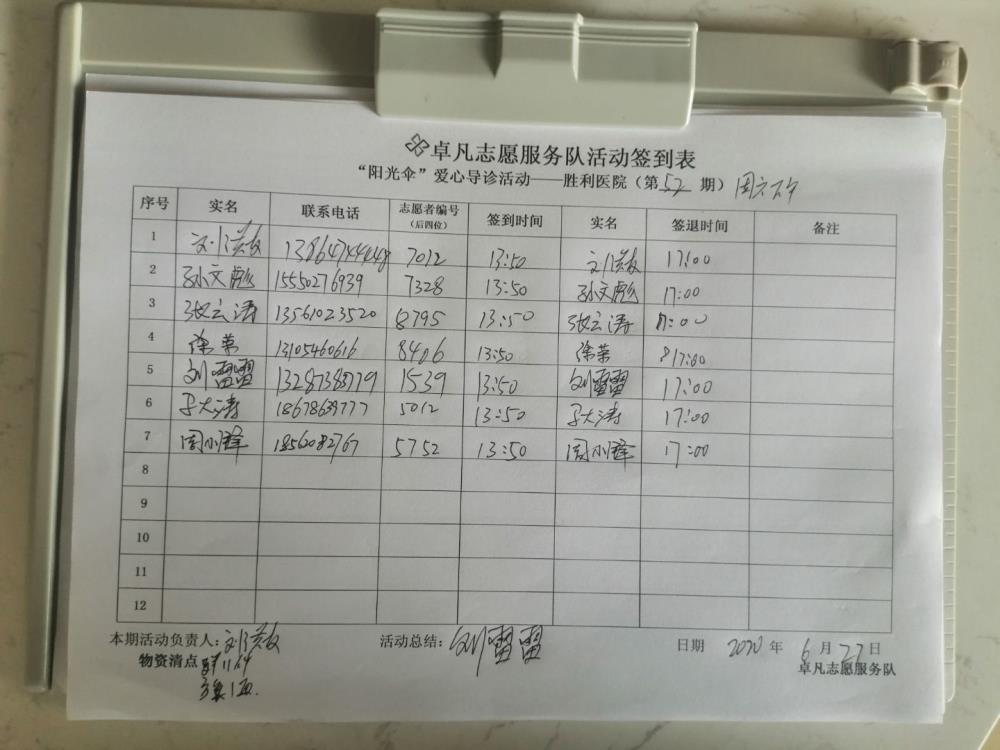 卓凡志愿服务队活动签到表
“阳光伞”爱心导诊活动——胜利医院（第 52 期）周六下午
序号 实名 联系电话 志愿者编号（后四位） 签到时间 实名 签退时间 备注
1 刘洪敏 13864744448 7012 13:50 刘洪敏 17:00
2 孙文彪 15550276939 7328 13:50 孙文彪 17:00
3 张云涛 13561023520 8795 13:50 张云涛 17:00
4 徐荣 13105460616 8406 13:50 徐荣 17:00
5 刘雷雷 13287383779 1539 13:50 刘雷雷 17:00
6 大涛 18678639777 5012 13:50 大涛 17:00
7 周小锋 18562082767 5752 13:50 周小锋 17:00
8
9
10
11
12
本期活动负责人：刘洪敏 活动总结：刘雷雷 日期 2020 年 6 月 27 日
物资清点 卓凡志愿服务队